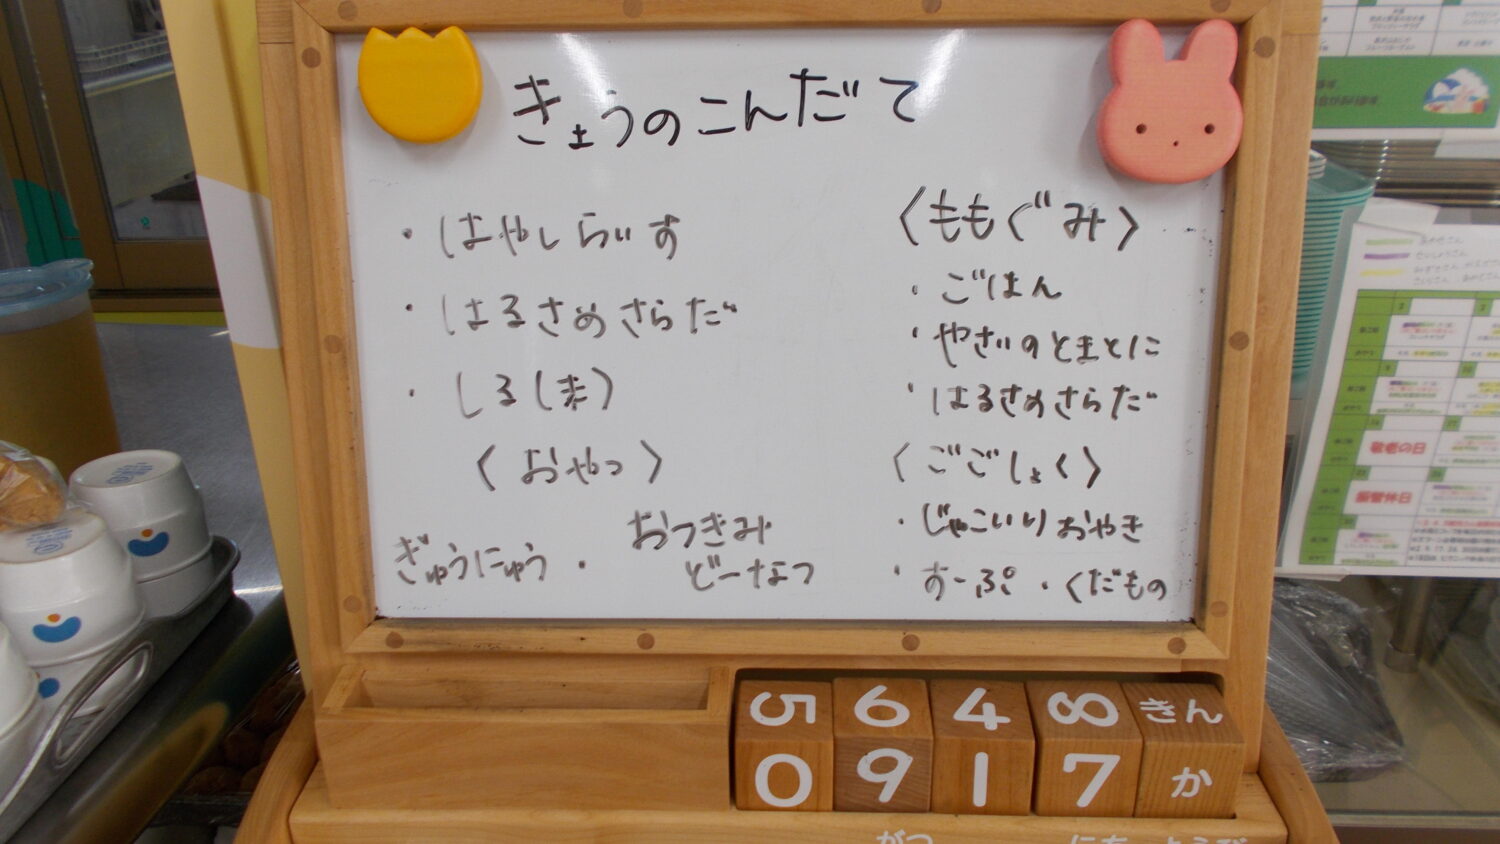 きょうのこんだて
・はやしらいす
・はるさめさらだ
・しる(ま)
〈おやつ〉
ぎゅうにゅう・おつきみ
どーなつ
〈ももぐみ〉
・ごはん
・やさいのとまとに
・はるさめさらだ
〈ごごしょく〉
・じゃこいりおやき
・すーぷ・くだもの
5 6 4 8 きん
0 9 1 7 か
がつ にち ようび
敬老の日
振替休日